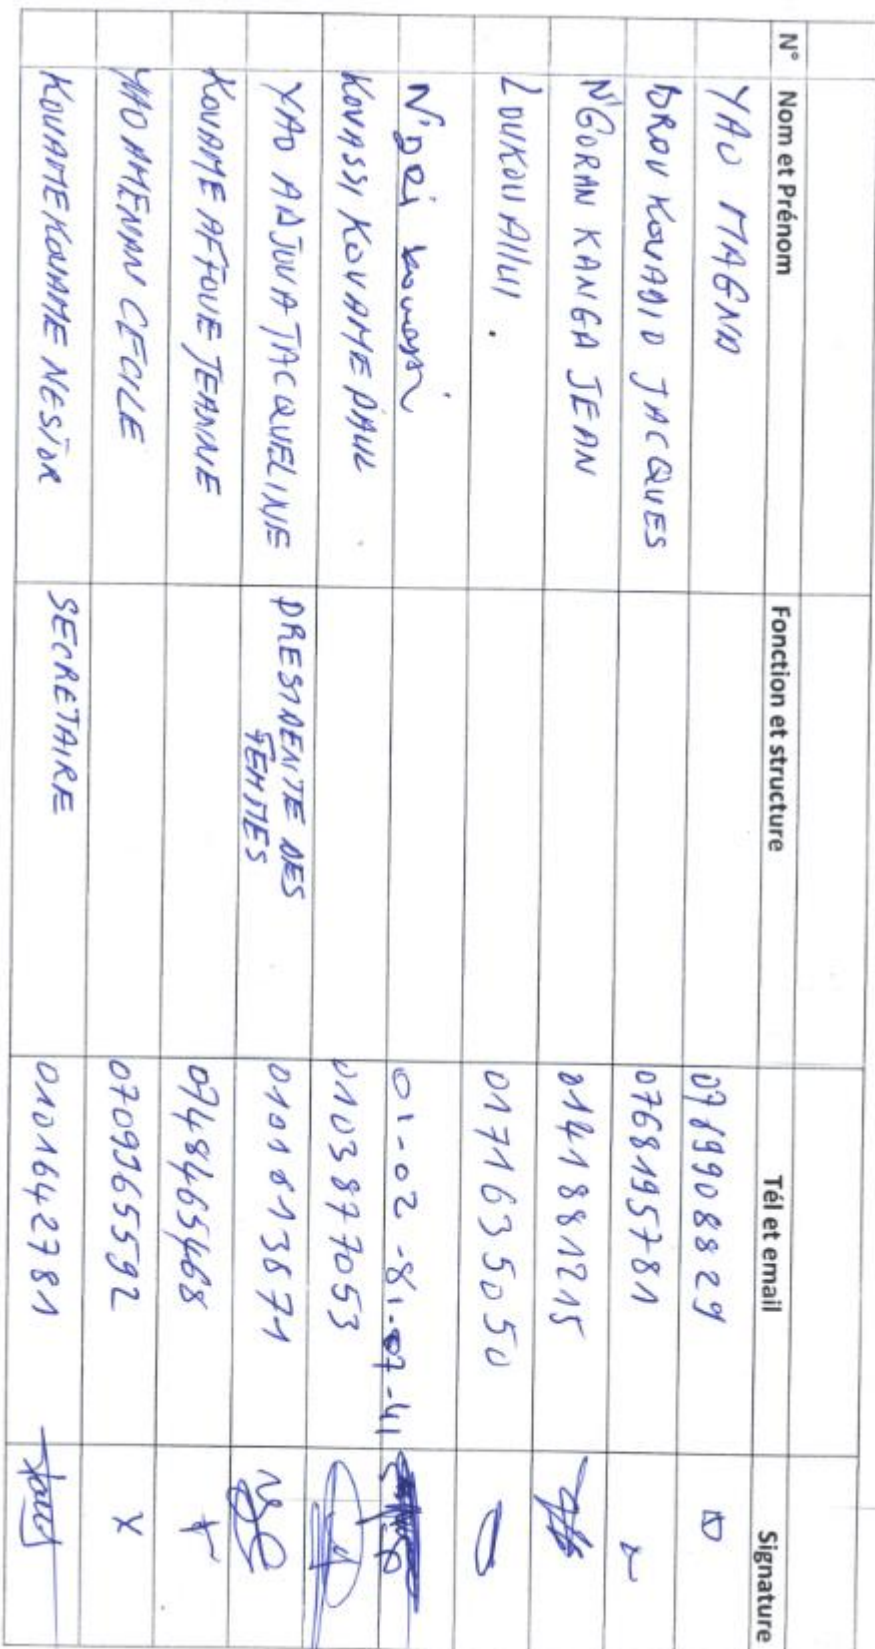 N° Nom et Prénom Fonction et structure Tél et email Signature
YAO MAGNO 0789908829
BROU KOUADIO JACQUES 0768195781
N'GORAN KANGA JEAN 0141881215
LOUKOU Allui . 0171635050
N'Dri kouassi 01-02-81-07-41
KOUASSI KOUAME PAUL 0103877053
YAO ADJOUA JACQUELINE PRESIDENTE DES
FEMMES
KOUAME AFFOUE JEANNE 0748465468
YAO AMENAN CECILE 0709365592 X
KOUAME KOUAME NESTOR SECRETAIRE 0101642781